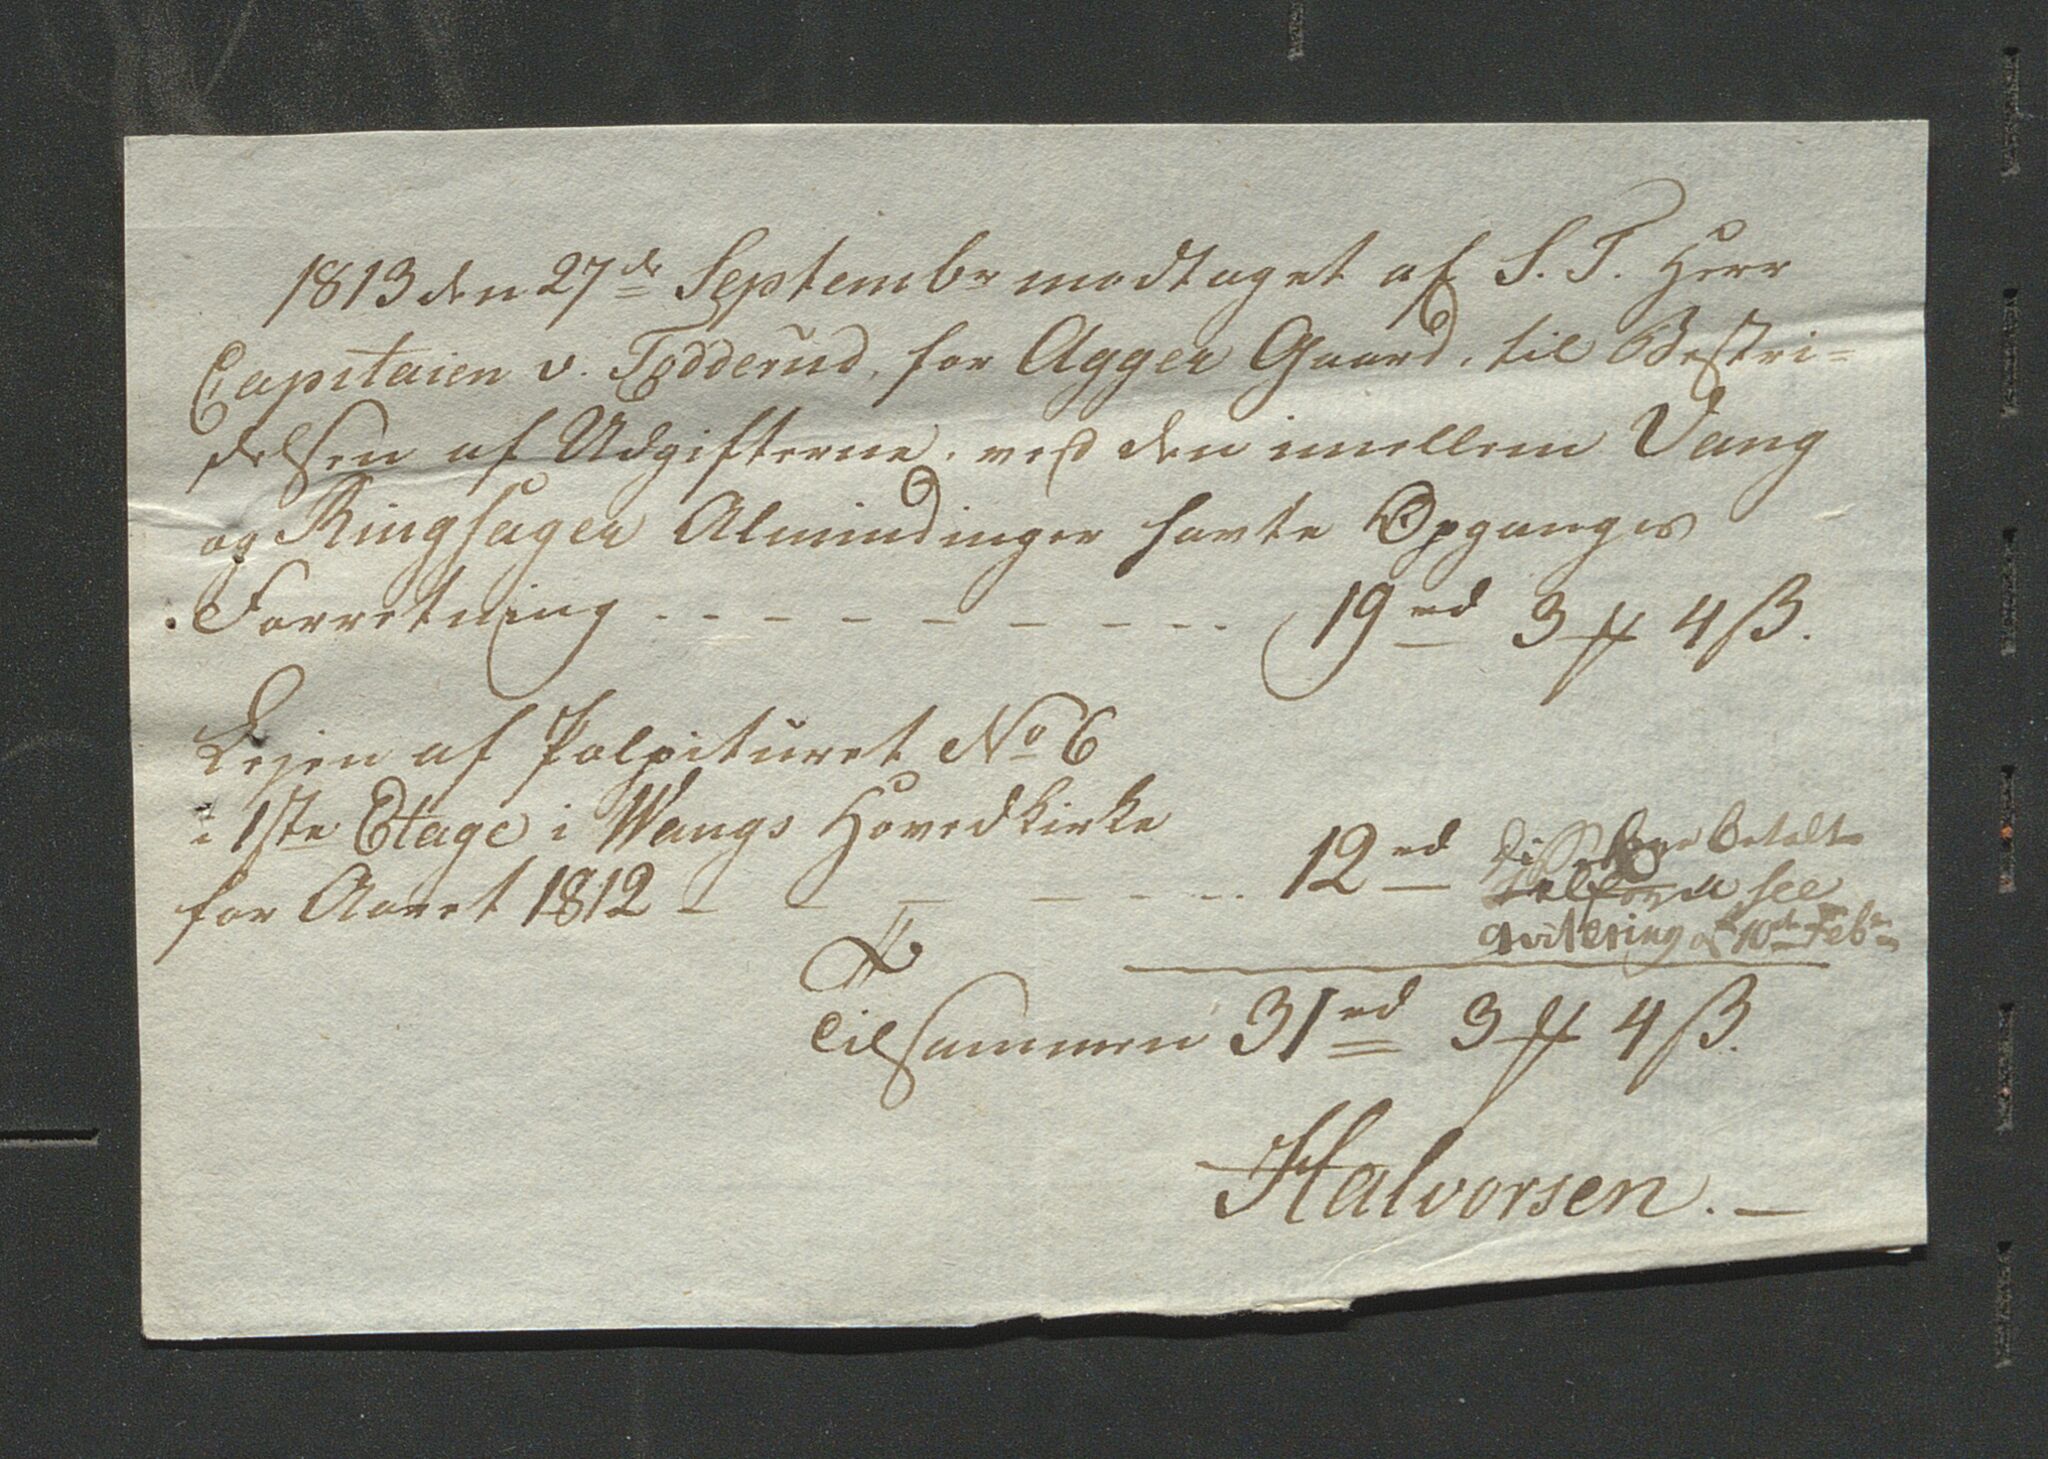 1813 den 27de Septembr modtaget af S. T. Herr
Capitaien v. Todderud, for Agger Gaard, til Bestri=
delsen af Udgifterne, ved den imellem Vang
og Ringsager Almindinger havte Opgangs
Forretning - - - - - - - - 19 rd 3 # 4 ß.
Lejen af Polpituret No 6
i 1ste Etage i Wangs Hovedkirke
for Aaret 1812 - - - - - - 12 rd
Disse ere betalt
see
qvitering af 10de Febr
Tilsammen 31 rd 3 # 4 ß.
Halvorsen. -